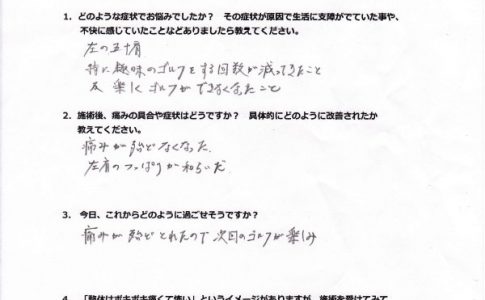 1. どのような症状でお悩みでしたか？ その症状が原因で生活に支障がでていた事や、
不快に感じていたことなどありましたら教えてください。
左の五十肩
特に趣味のゴルフをする回数が減ってきたこと
及 楽しくゴルフができなくなったこと
2. 施術後、痛みの具合や症状はどうですか？ 具体的にどのように改善されたか
教えてください。
痛みが殆どなくなった
左肩のつっぱりが和らいだ
3. 今日、これからどのように過ごせそうですか？
痛みが殆どとれたので次回のゴルフが楽しみ
4. 「整体はボキボキ痛くて怖い」というイメージがありますが、施術を受けてみて